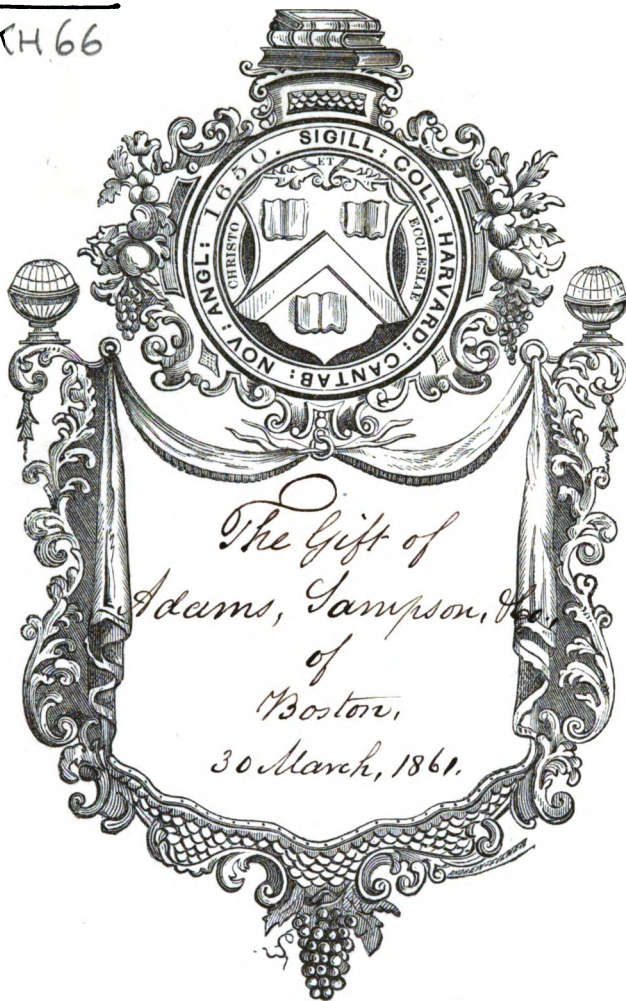 KH 66
SIGILL: COLL: HARVARD: CANTAB: NOV: ANGL: 1650.
CHRISTO
ET
ECCLESIAE
The Gift of
Adams, Sampson, & Co.,
of
Boston,
30 March, 1861.